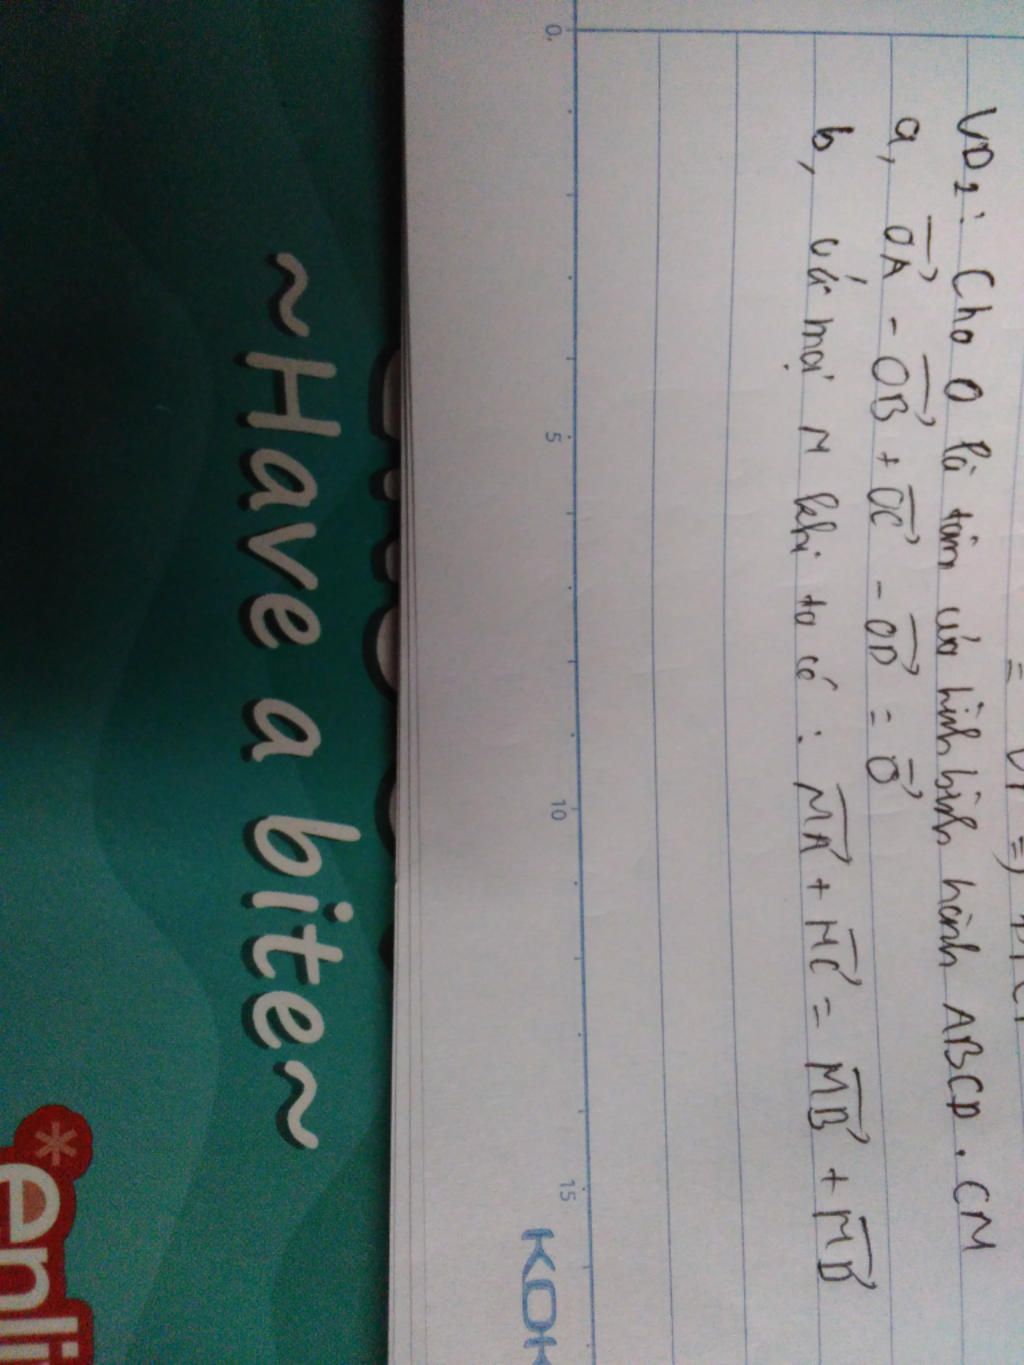 VD1: Cho O là tâm của hình bình hành ABCD. CM
a, OA⃗ - OB⃗ + OC⃗ - OD⃗ = O⃗
b, với mọi M khi ta có : MA⃗ + MC⃗ = MB⃗ + MD⃗
0
5
10
15
KOK
~Have a bite~
*enli